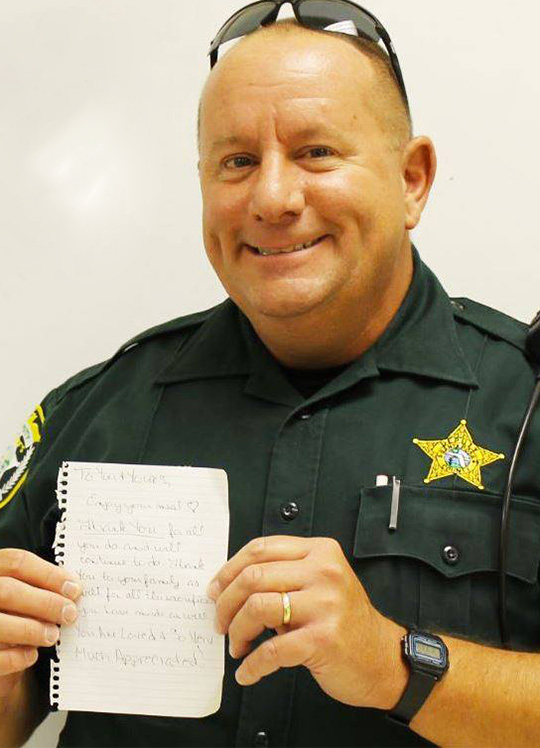 To You & Yours,
Enjoy your meal ♡
Thank You, for all
you do and will
continue to do. Thank
You to your family as
well for all the sacrifices
you have made as well
You Are Loved & So Very
Much Appreciated